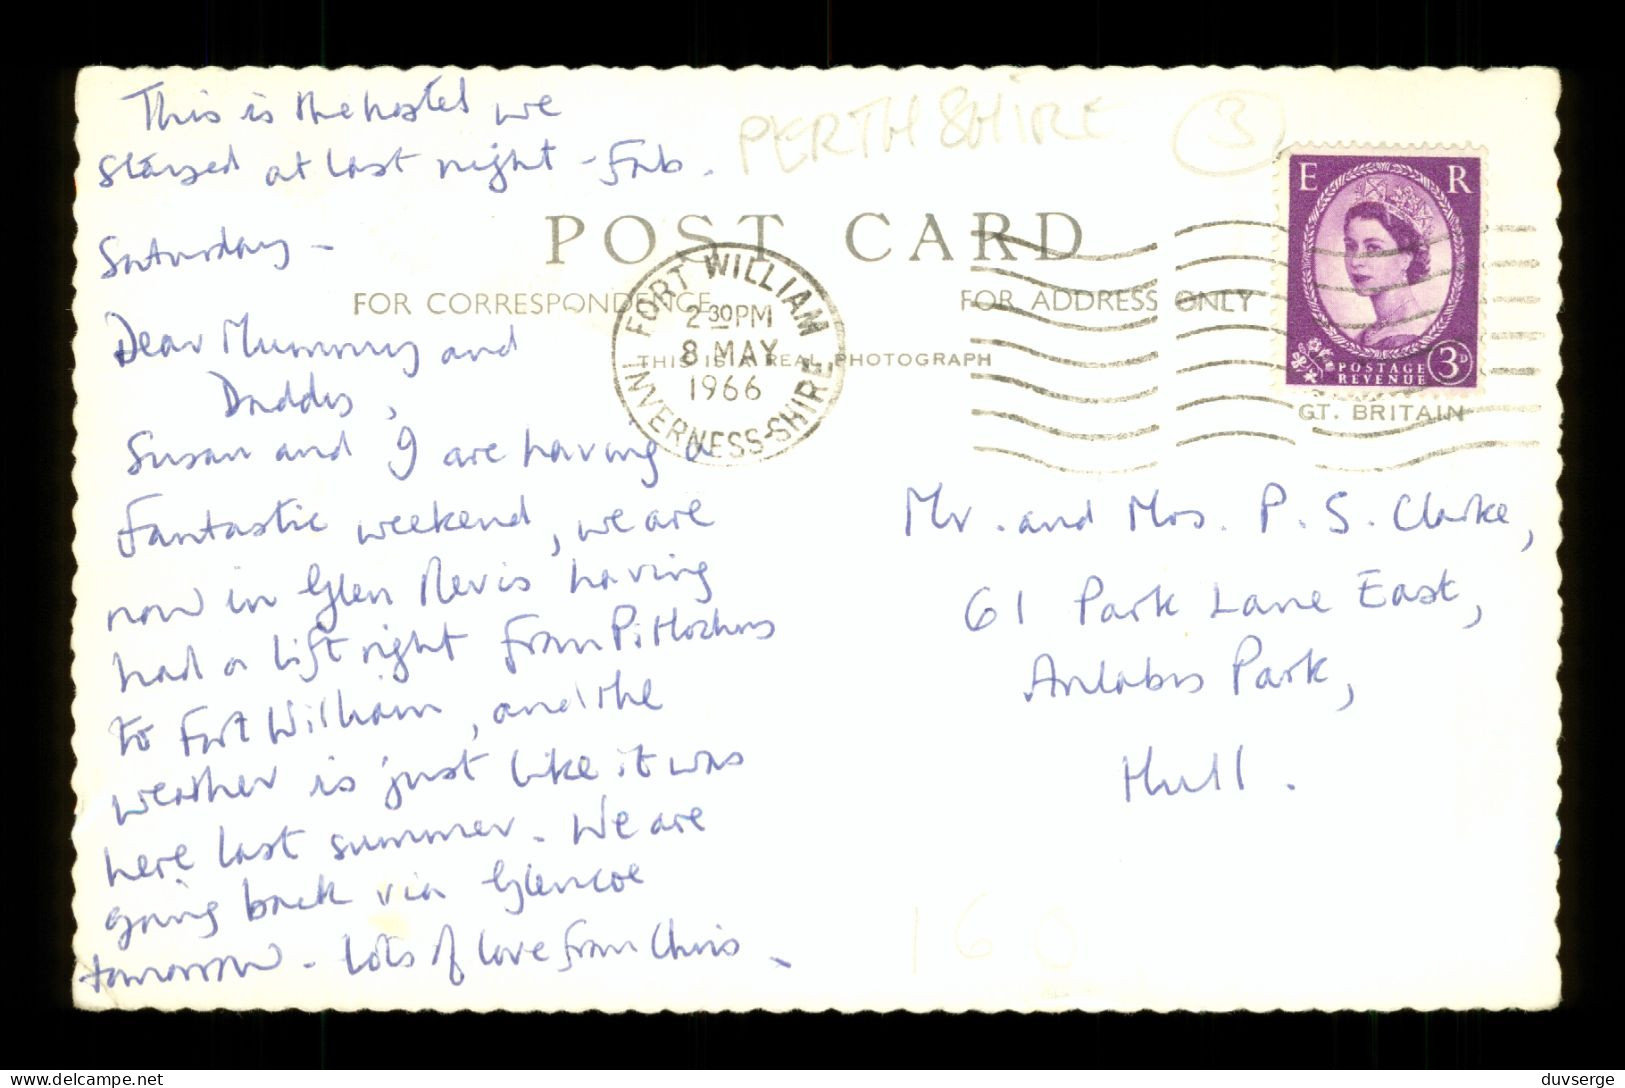 This is the hostel we
stayed at last night - fab.
PERTHSHIRE 3
Saturday -
Dear Mummy and
Daddy,
Susan and I are having a
fantastic weekend, we are
now in Glen Nevis having
had a lift right from Pitlochry
to Fort William, and the
weather is just like it was
here last summer. We are
going back via Glencoe
tomorrow - Lots of love from Chris.
POST CARD
FOR CORRESPONDENCE
FOR ADDRESS ONLY
THIS IS A REAL PHOTOGRAPH
FORT WILLIAM
2 30 PM
8 MAY
1966
INVERNESS-SHIRE
E R
POSTAGE
REVENUE
3D
GT. BRITAIN
Mr. and Mrs. P. S. Clarke,
61 Park Lane East,
Anlaby Park,
Hull.
160
delcampe.net
duvserge